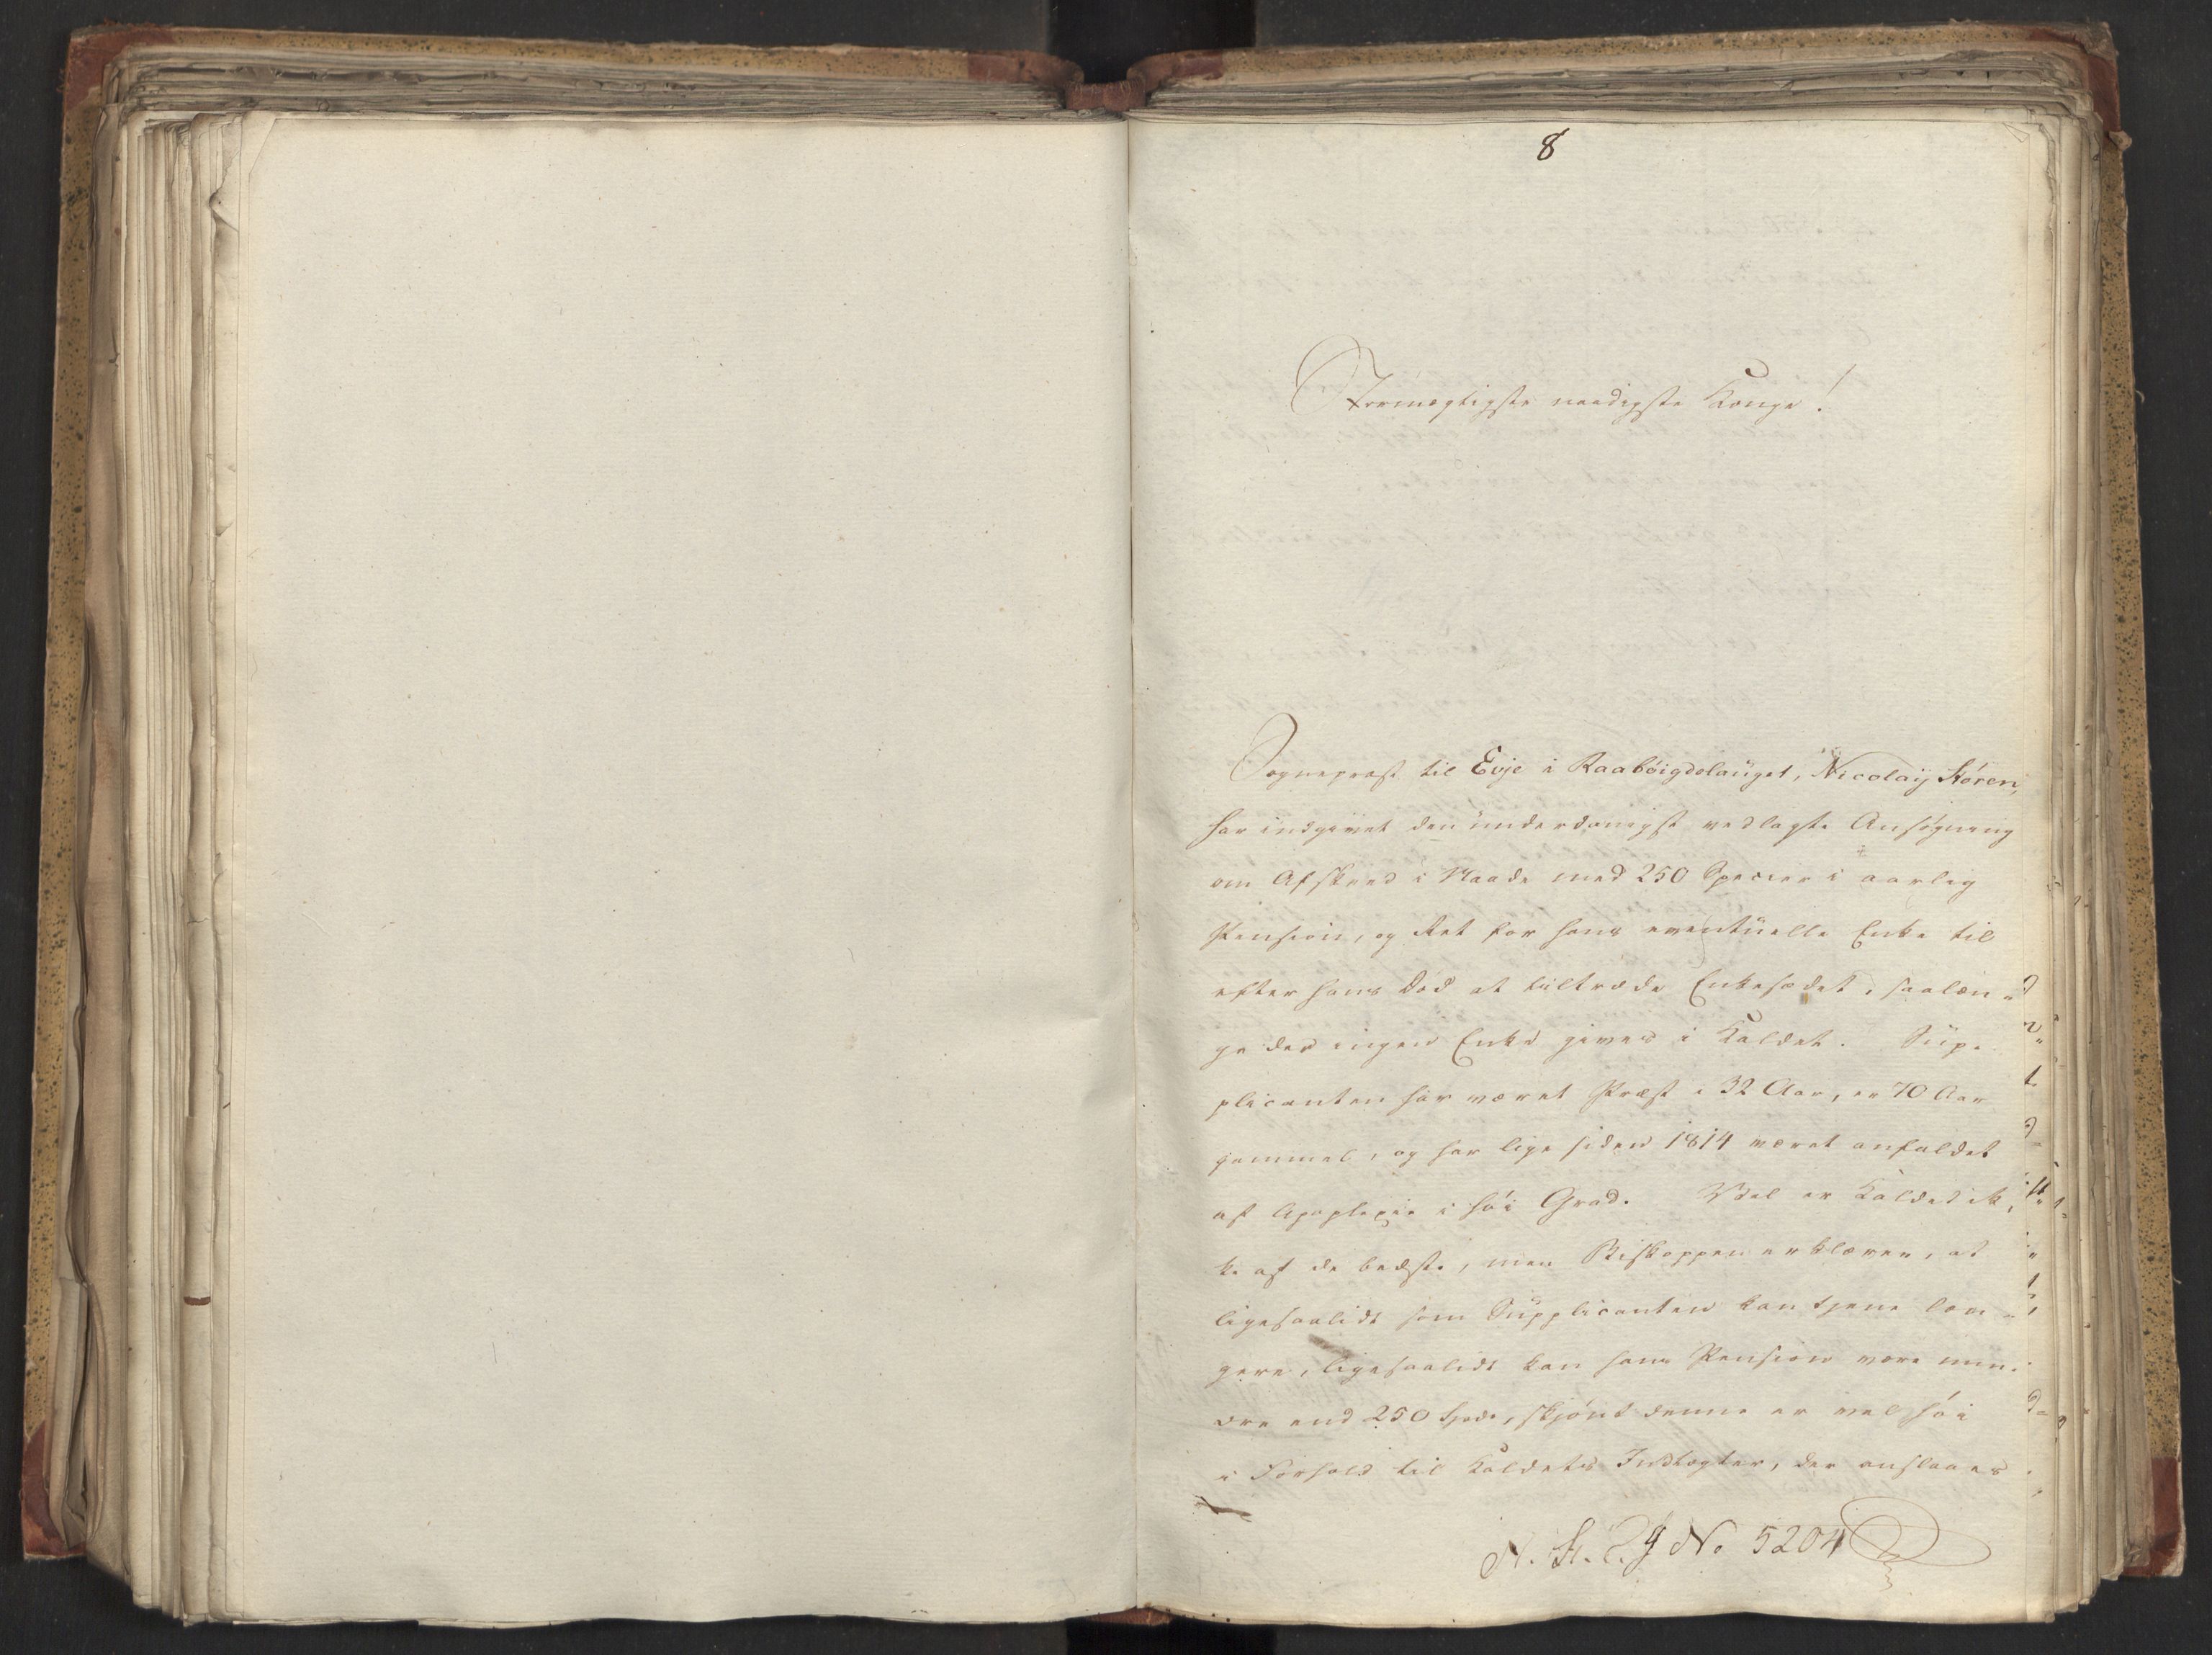 8
Stormægtigste naadigste Konge!
Sognepræst til Evje i Raabøigdelauget, Nicolaij Støren,
har indgivet den underdanigst vedlagte Ansøgning
om Afskeed i Naade med 250 Species i aarlig
Pension, og Ret for hans eventuelle Enke til
efter hans Død at tiltræde Enkesædet, saalæn-
ge der ingen Enke gives i Kaldet. Sup-
plicanten har været Præst i 32 Aar, er 70 Aar
gammel, og har lige siden 1814 været anfaldet
af Apoplexie i høi Grad. Vel er Kaldet ik-
ke af de bedste, men Biskoppen erklærer, at
ligesaalidt som Supplicanten kan tjene læn-
gere, ligesaalidt kan hans Pension være min-
dre end 250 Spd, skjønt denne er vel høi
i Forhold til Kaldets Indtægter, der anslaaes
No 5204